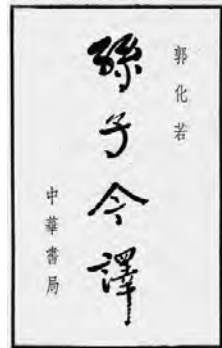 郭化若
孫子今譯
中華書局